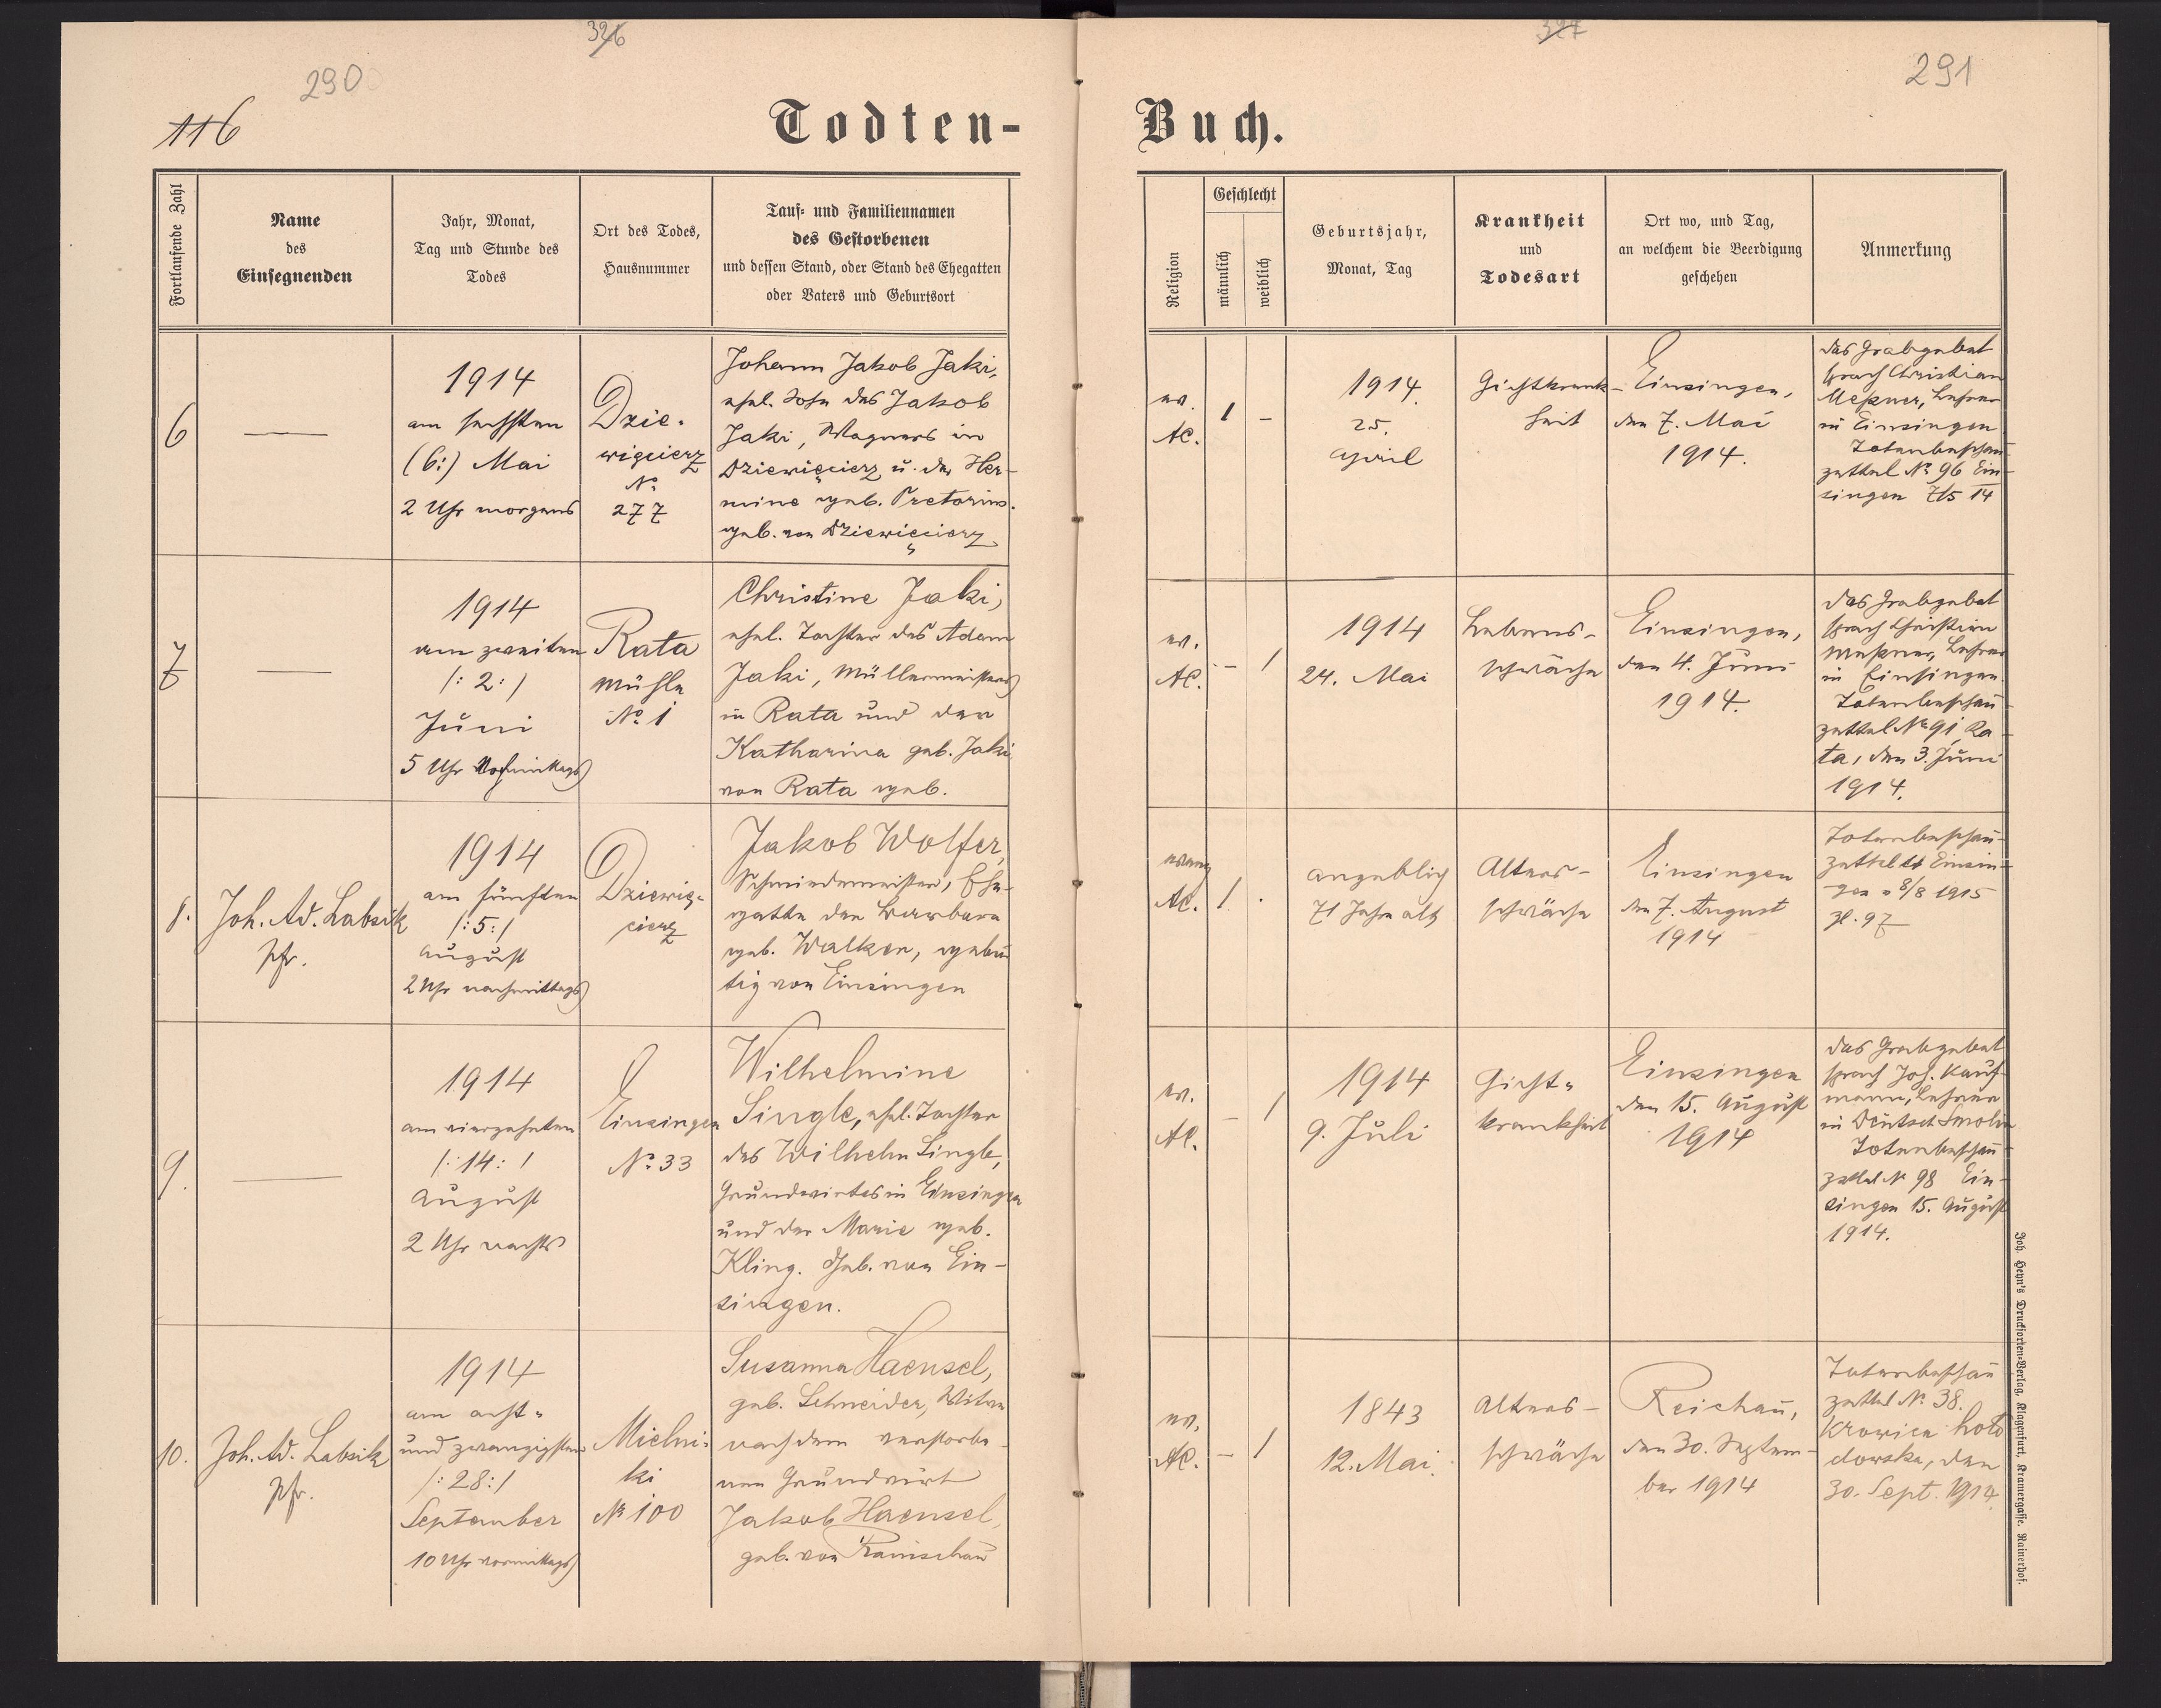 326
290
116
Todten-
Fortlaufende Zahl
Name
des
Einsegnenden
Jahr, Monat,
Tag und Stunde des
Todes
Ort des Todes,
Hausnummer
Tauf- und Familiennamen
des Gestorbenen
und dessen Stand, oder Stand des Ehegatten
oder Vaters und Geburtsort
6
1914
am sechsten
(6:) Mai
2 Uhr morgens
Dzie-
więcierz
No
277
Johann Jakob Jaki,
ehel. Sohn des Jakob
Jaki, Wagners in
Dziewięcierz u. der Her-
mine geb. Pretorius.
geb. von Dziewięcierz
7
1914
am zweiten
/: 2:/
Juni
5 Uhr
Rata
Mühle
No. 1
Christine Jaki,
ehel. Tochter des Adam
Jaki, Müllermeisters
in Rata und der
Katharina geb. Jaki
von Rata geb.
8.
Joh. Ad. Labsik
Pfr.
1914
am fünften
/:5:/
August
2 Uhr nachmittags
Dziewię-
cierz
Jakob Wolfer,
Schmiedemeister, Ehe-
gatte der Barbara
geb. Walken, gebür
tig von Einsingen
9.
1914
am vierzehnten
/:14:/
August
2 Uhr nachts
Einsingen
No. 33
Wilhelmine
Single, ehel. Tochter
des Wilhelm Single,
Grundwirtes in Einsingen
und der Marie geb.
Kling. Geb. von Ein-
singen.
10.
Joh. Ad. Labsik
Pfr.
1914
am acht-
und zwanzigsten
/:28:/
September
10 Uhr vormittags
Mielni-
ki
No 100
Susanna Haensel,
geb. Schneider, Witwe
nach dem verstorbe-
nen Grundwirt
Jakob Haensel,
geb. von
327
291
Buch.
Religion
Geschlecht
männlich
weiblich
Geburtsjahr,
Monat, Tag
Krankheit
und
Todesart
Ort wo, und Tag,
an welchem die Beerdigung
geschehen
Anmerkung
ev.
AC.
1
-
1914.
25.
April
Gichtkrank-
heit
Einsingen,
den 7. Mai
1914.
das Grabgebet
sprach Christian
Meßner, Lehrer
in Einsingen
Totenbeschau-
zettel No. 96 Ein-
singen 7/5 14
ev.
AC.
-
1
1914
24. Mai
Lebens-
schwäche
Einsingen,
den 4. Juni
1914.
das Grabgebet
sprach Christian
Meßner, Lehrer
in Einsingen.
Totenbeschau-
zettel No 91, Ra-
ta, den 3. Juni
1914.
evang
AC.
1
.
angeblich
71 Jahre alt
Alters-
schwäche
Einsingen
den 7. August
1914
Totenbeschau-
zettel Einsin-
gen 8/8 1915
Zl. 97
ev.
AC.
-
1
1914
9. Juli
Gicht-
krankheit
Einsingen
den 15. August
1914
das Grabgebet
sprach Joh. Kauf-
mann, Lehrer
in Deutsch Smolin
Totenbeschau-
zettel No 98 Ein-
singen 15. August
1914.
ev.
AC.
-
1
1843
12. Mai.
Alters-
schwäche
Reichau,
den 30. Septem-
ber 1914
Totenbeschau
zettel No. 38.
Krowica hoło
dowska, den
30. Sept. 1914.
Joh. Heyn's Drucksorten-Verlag, Klagenfurt, Kramergasse, Rainerhof.